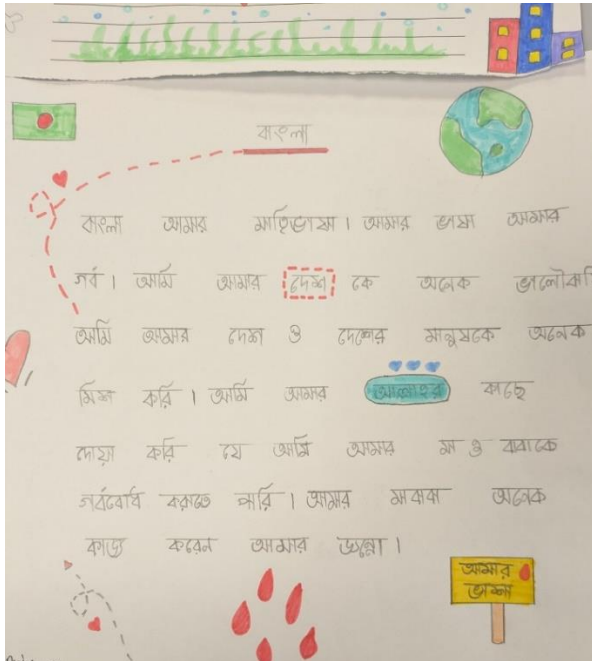 বাংলা
বাংলা আমার মাতিৃভাষা। আমার ভাষা আমার
গর্ব। আমি আমার দেশ কে অনেক
আমি আমার দেশ ও দেশের মানুষকে অনেক
মিশ করি। আমি আমার আল্লাহর কাছে
দোয়া করি যে আমি আমার মা ও বাবাকে
গর্ববোধ করাতে পারি। আমার মা বাবা অনেক
কাজ করেন আমার জন্নো।
আমার
ভাশা